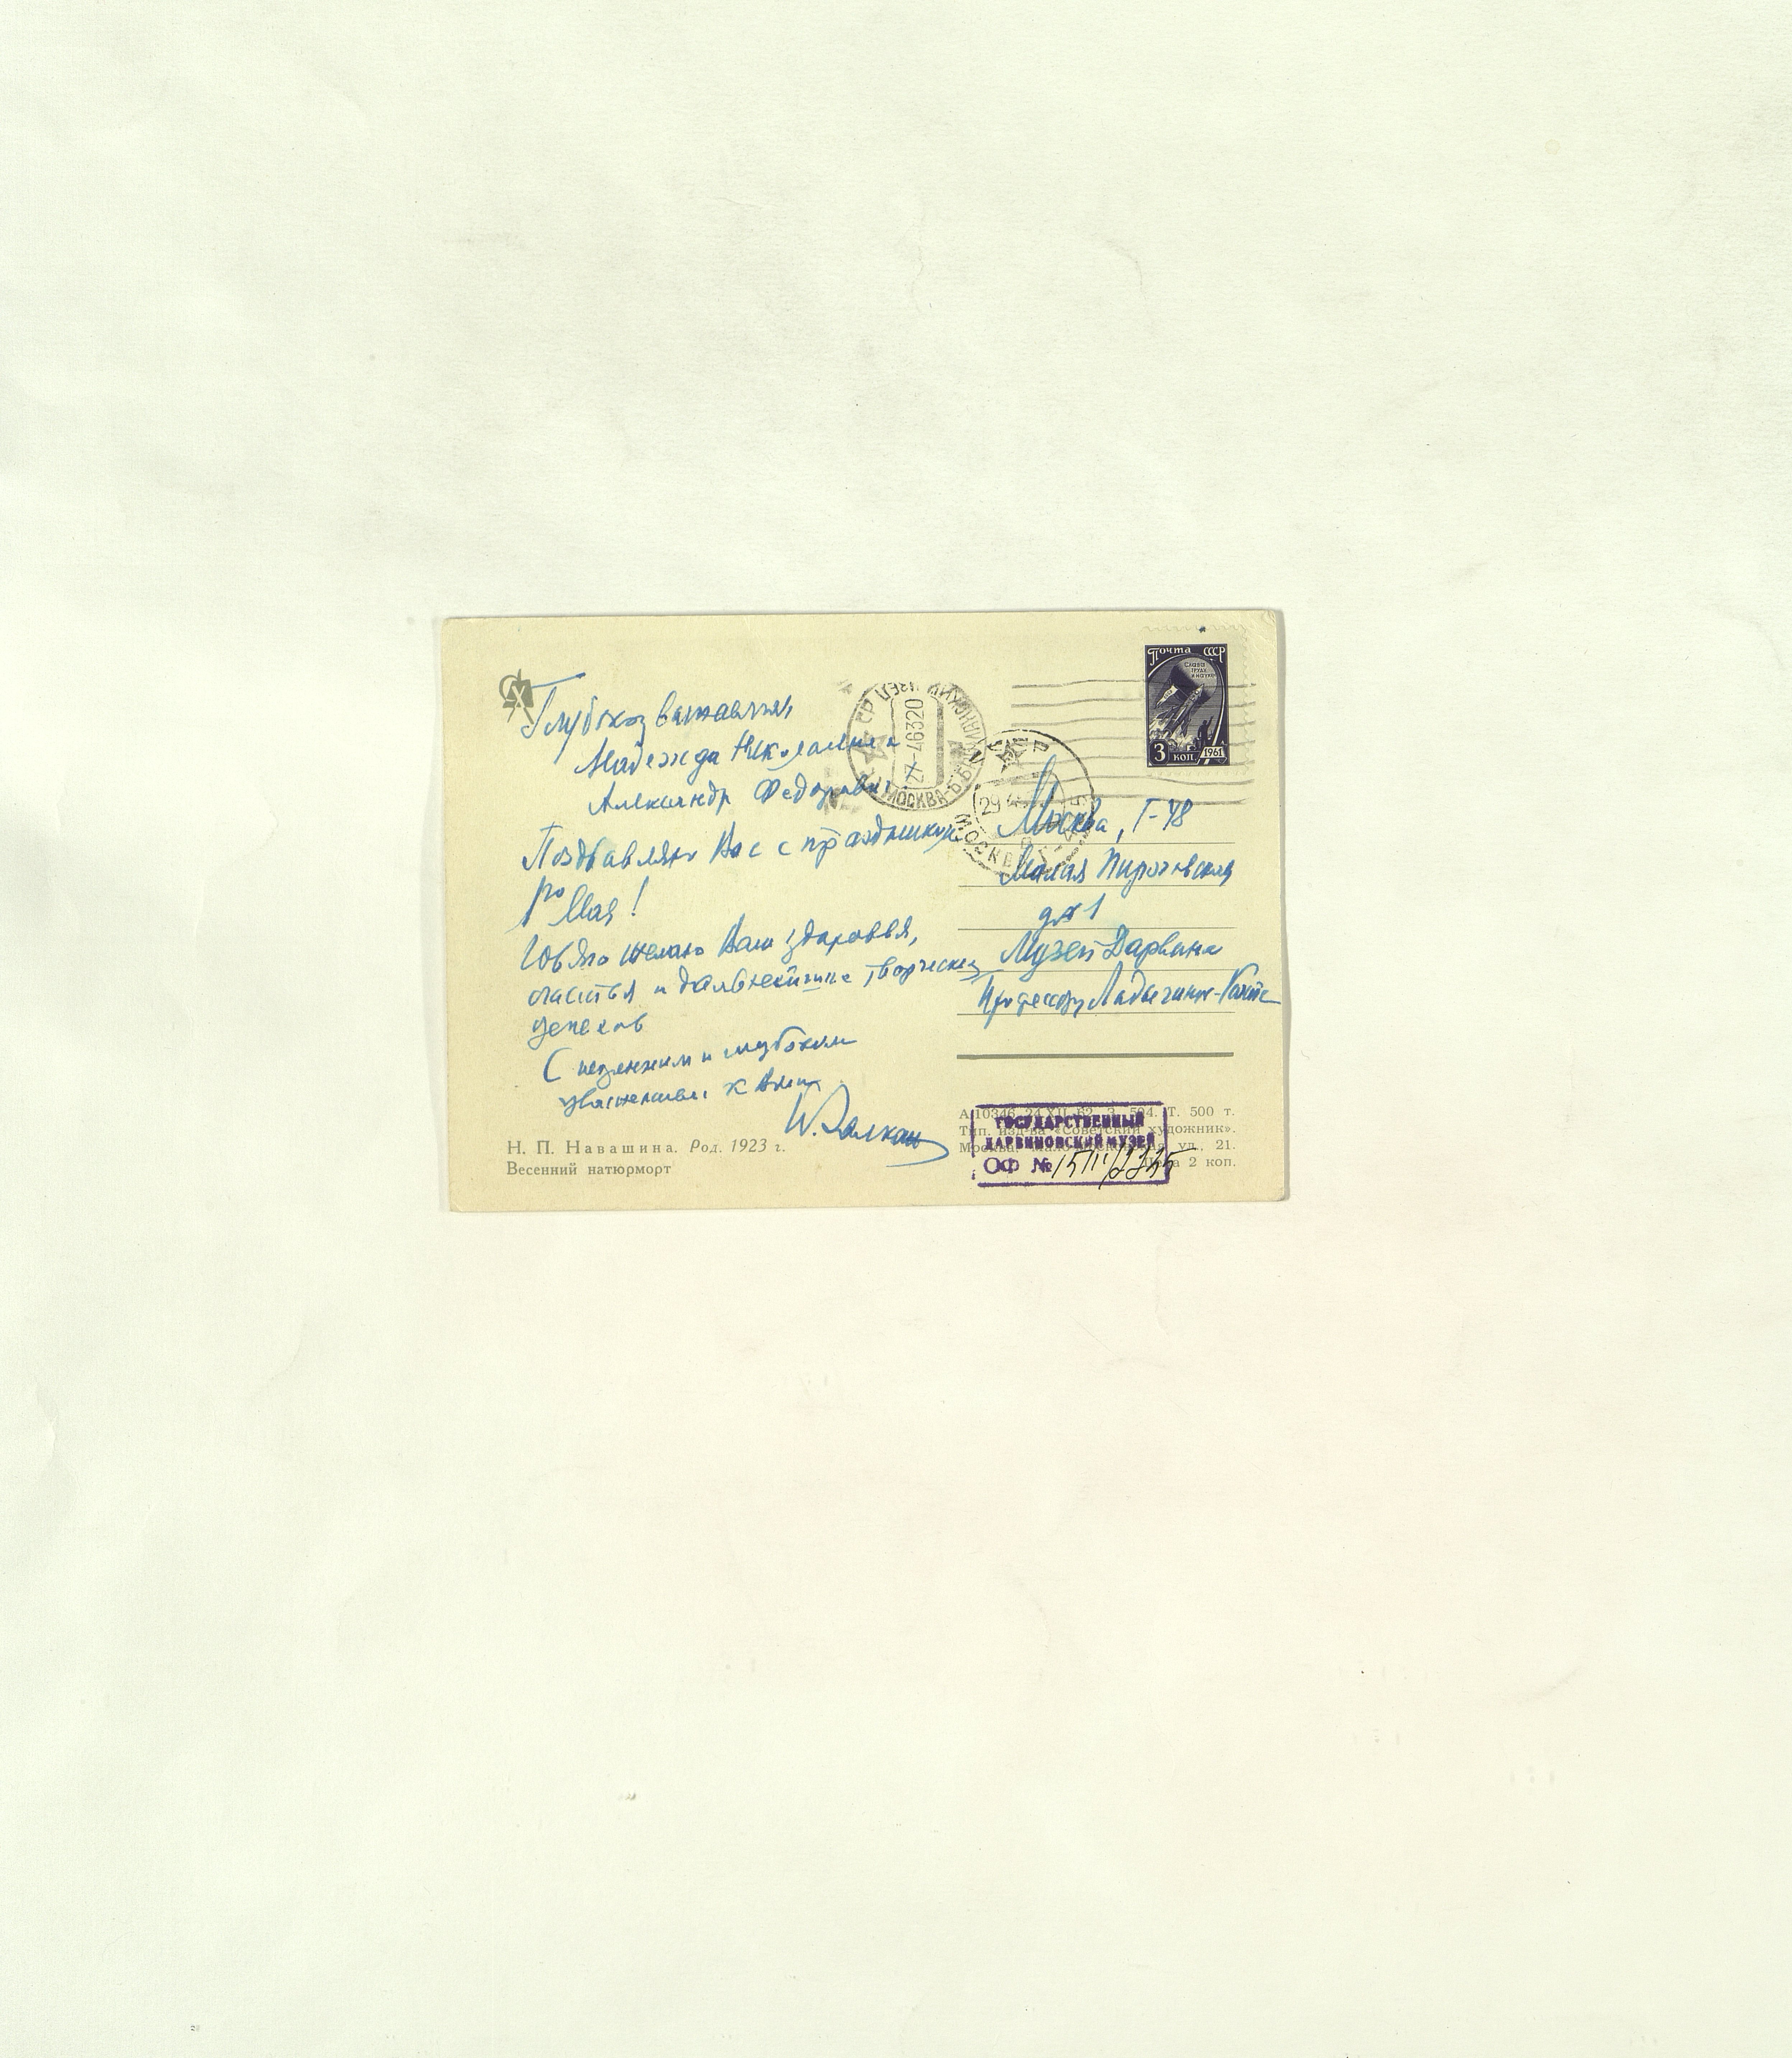 Глубокоуважаемые
Надежда Николаевна
Александр Федорович
Поздравляю Вас с праздником
1го Мая!
желаю Вам здоровья,
счастья и дальнейших творческих
успехов
С искренним и глубоким
уважением к Вам
Н. П. Навашина. Род. 1923 г.
Весенний натюрморт
Почта СССР
Слава
труду
и науке
3 коп. 1961
27-46320
МОСКВА
29 4
МОСКВА
Москва, Г-48
Малая Пироговская
д № 1
Музей Дарвина
Профессору Ладыгиной-Котс
А10346 24 XII 62. З. 504. Т. 500 т.
Тип. изд-ва «Советский художник».
Москва, ул., 21.
Цена 2 коп.
ГОСУДАРСТВЕННЫЙ
ДАРВИНОВСКИЙ МУЗЕЙ
ОФ №